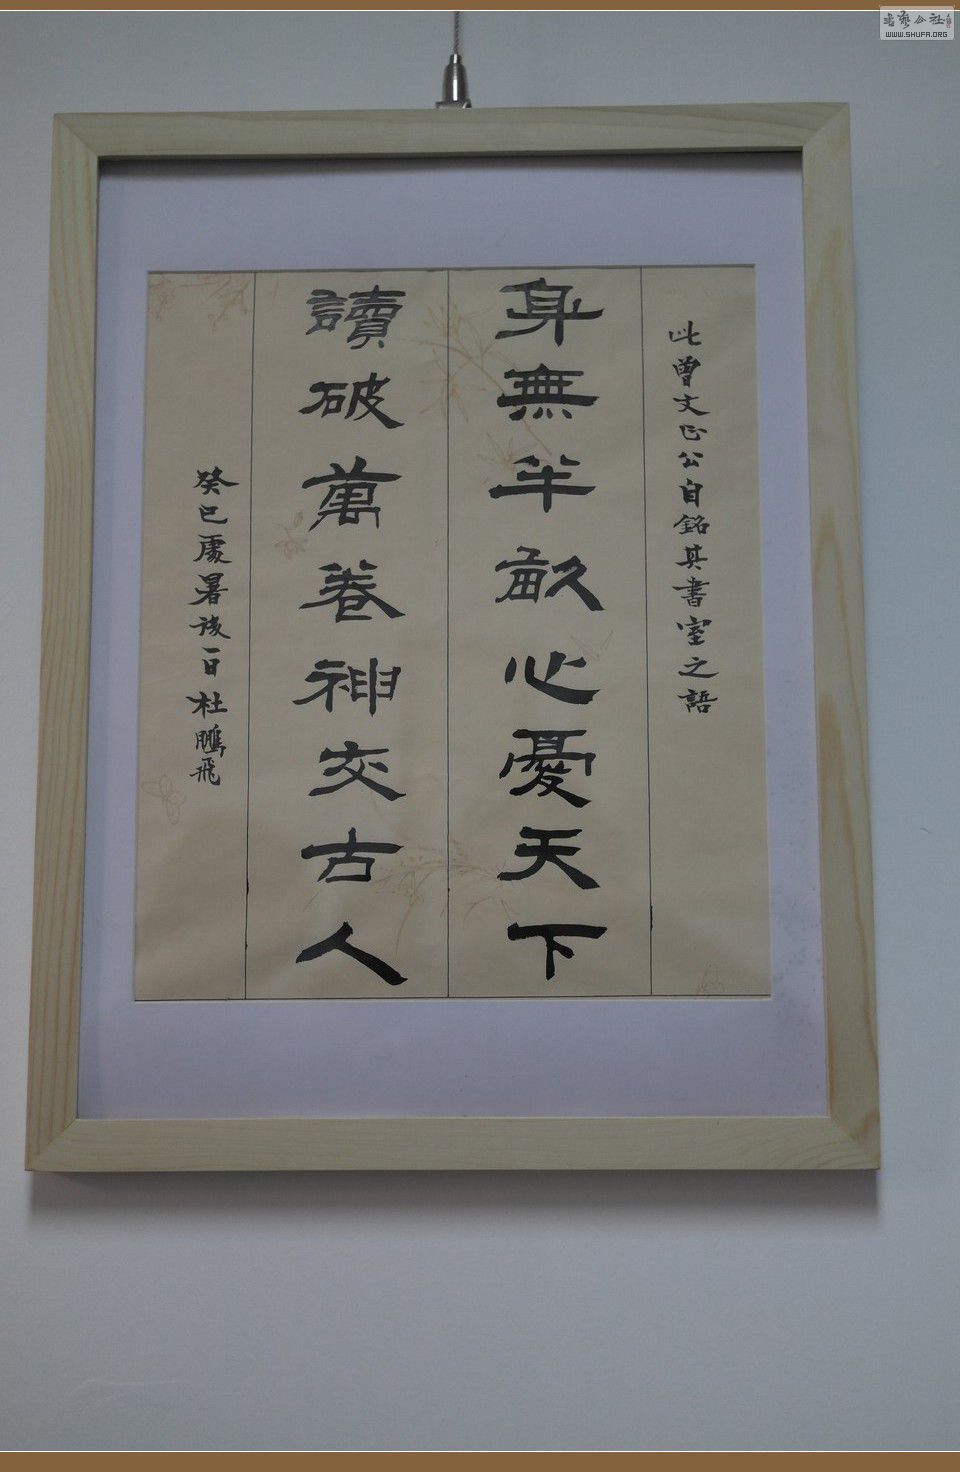 此曾文正公自銘其書室之語
身無半畝心憂天下
讀破萬卷神交古人
癸巳處暑後一日杜鵬飛
书艺公社
WWW.SHUFA.ORG